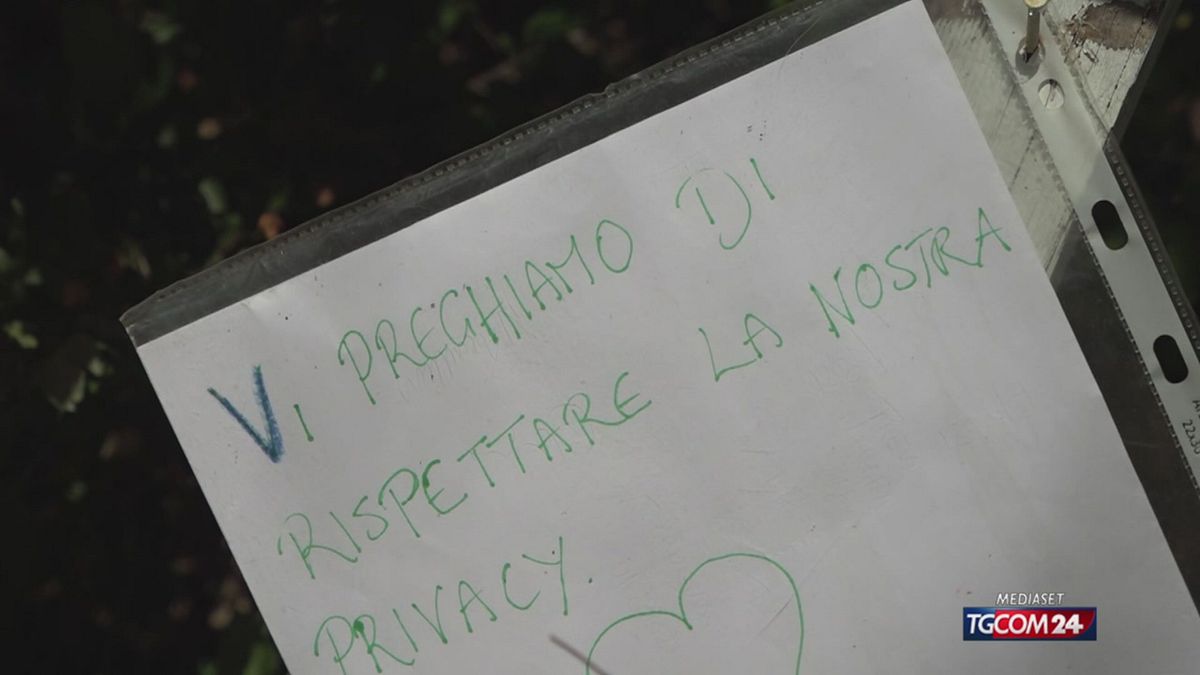 VI PREGHIAMO DI
RISPETTARE LA NOSTRA
PRIVACY.
MEDIASET
TGCOM24